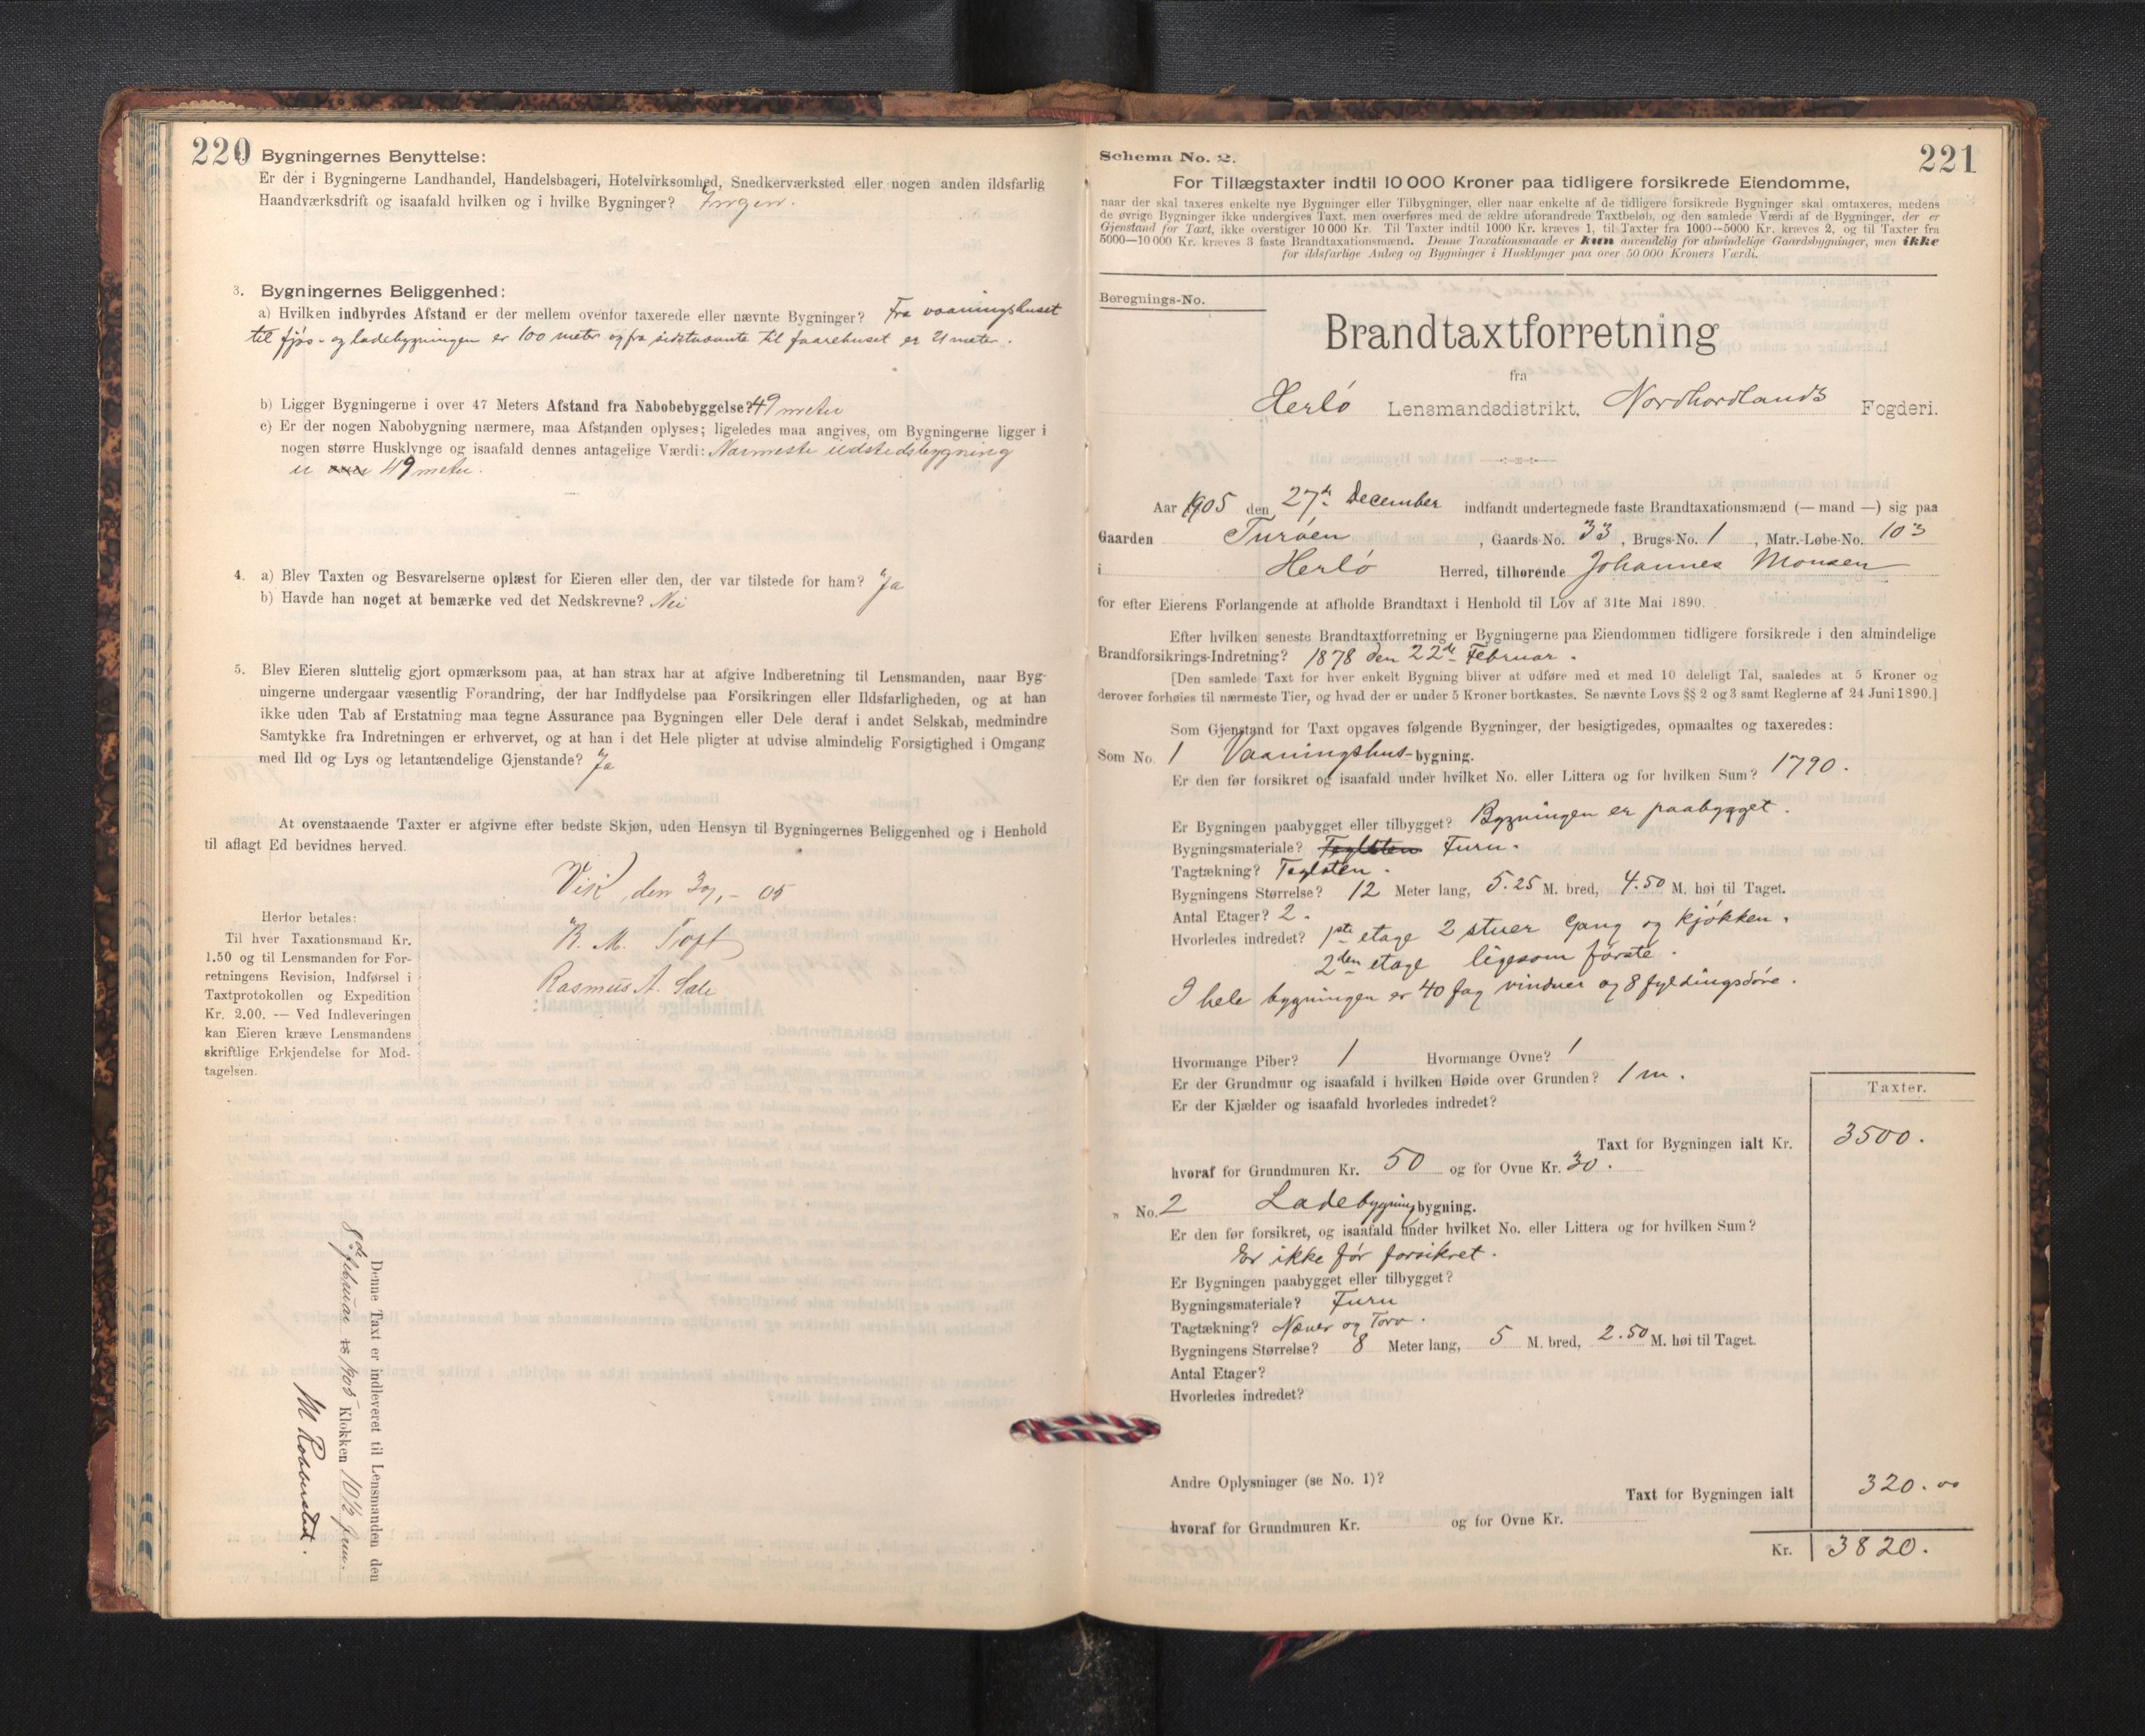 220
Bygningernes Benyttelse:
Er der i Bygningerne Landhandel, Handelsbageri, Hotelvirksomhed, Snedkerværksted eller nogen anden ildsfarlig
Haandværksdrift og isaafald hvilken og i hvilke Bygninger? Ingen.
3. Bygningernes Beliggenhed:
a) Hvilken indbyrdes Afstand er der mellem ovenfor taxerede eller nævnte Bygninger? Fra vaaningshuset
til fjøs- og ladebygningen er 100 meter og fra sidstnævnte til faarehuset er 21 meter.
b) Ligger Bygningerne i over 47 Meters Afstand fra Nabobebyggelse? 49 meter
c) Er der nogen Nabobygning nærmere, maa Afstanden oplyses; ligeledes maa angives, om Bygningerne ligger i
nogen større Husklynge og isaafald dennes antagelige Værdi: Nærmeste ildstedsbygning
er 49 meter.
4. a) Blev Taxten og Besvarelserne oplæst for Eieren eller den, der var tilstede for ham? Ja
b) Havde han noget at bemærke ved det Nedskrevne? Nei
5. Blev Eieren sluttelig gjort opmærksom paa, at han strax har at afgive Indberetning til Lensmanden, naar Byg-
ningerne undergaar væsentlig Forandring, der har Indflydelse paa Forsikringen eller Ildsfarligheden, og at han
ikke uden Tab af Erstatning maa tegne Assurance paa Bygningen eller Dele deraf i andet Selskab, medmindre
Samtykke fra Indretningen er erhvervet, og at han i det Hele pligter at udvise almindelig Forsigtighed i Omgang
med Ild og Lys og letantændelige Gjenstande? Ja
At ovenstaaende Taxter er afgivne efter bedste Skjøn, uden Hensyn til Bygningernes Beliggenhed og i Henhold
til aflagt Ed bevidnes herved.
Vik, den 30/1 - 05
R. M. Toft
Rasmus A. Sale
Herfor betales:
Til hver Taxationsmand Kr.
1.50 og til Lensmanden for For-
retningens Revision, Indførsel i
Taxtprotokollen og Expedition
Kr. 2.00. — Ved Indleveringen
kan Eieren kræve Lensmandens
skriftlige Erkjendelse for Mod-
tagelsen.
Denne Taxt er indleveret til Lensmanden den
8de februar 18/1905 Klokken 10½ form.
221
Schema No. 2.
For Tillægstaxter indtil 10 000 Kroner paa tidligere forsikrede Eiendomme,
naar der skal taxeres enkelte nye Bygninger eller Tilbygninger, eller naar enkelte af de tidligere forsikrede Bygninger skal omtaxeres, medens
de øvrige Bygninger ikke undergives Taxt, men overføres med de ældre uforandrede Taxtbeløb, og den samlede Værdi af de Bygninger, der er
Gjenstand for Taxt, ikke overstiger 10 000 Kr. Til Taxter indtil 1000 Kr. kræves 1, til Taxter fra 1000—5000 Kr. kræves 2, og til Taxter fra
5000—10 000 Kr. kræves 3 faste Brandtaxationsmænd. Denne Taxationsmaade er kun anvendelig for almindelige Gaardsbygninger, men ikke
for ildsfarlige Anlæg og Bygninger i Husklynger paa over 50 000 Kroners Værdi.
Beregnings-No.
Brandtaxtforretning
fra
Herlø Lensmandsdistrikt, Nordhordlands Fogderi.
Aar 1905 den 27de December indfandt undertegnede faste Brandtaxationsmænd (— mand —) sig paa
Gaarden Turøen, Gaards-No. 33, Brugs-No. 1, Matr.-Løbe-No. 103
i Herlø Herred, tilhørende Johannes Monsen
for efter Eierens Forlangende at afholde Brandtaxt i Henhold til Lov af 31te Mai 1890.
Efter hvilken seneste Brandtaxtforretning er Bygningerne paa Eiendommen tidligere forsikrede i den almindelige
Brandforsikrings-Indretning? 1878 den 22de Februar.
[Den samlede Taxt for hver enkelt Bygning bliver at udføre med et med 10 deleligt Tal, saaledes at 5 Kroner og
derover forhøies til nærmeste Tier, og hvad der er under 5 Kroner bortkastes. Se nævnte Lovs §§ 2 og 3 samt Reglerne af 24 Juni 1890.]
Som Gjenstand for Taxt opgaves følgende Bygninger, der besigtigedes, opmaaltes og taxeredes:
Som No. 1 Vaaningshus-bygning.
Er den før forsikret og isaafald under hvilket No. eller Littera og for hvilken Sum? 1790.
Er Bygningen paabygget eller tilbygget? Bygningen er paabygget.
Bygningsmateriale? Taglsten Furu.
Tagtækning? Taglsten.
Bygningens Størrelse? 12 Meter lang, 5.25 M. bred, 4.50 M. høi til Taget.
Antal Etager? 2.
Hvorledes indredet? 1ste etage 2 stuer Gang og kjøkken.
2den etage ligesom første.
I hele bygningen er 40 fag vinduer og 8 fyldingsdøre.
Hvormange Piber? 1 Hvormange Ovne? 1
Er der Grundmur og isaafald i hvilken Høide over Grunden? 1 m.
Er der Kjælder og isaafald hvorledes indredet?
Taxter.
Taxt for Bygningen ialt Kr. 3500.
hvoraf for Grundmuren Kr. 50 og for Ovne Kr. 30.
" No. 2 Ladebygning bygning.
Er den før forsikret, og isaafald under hvilket No. eller Littera og for hvilken Sum?
Er ikke før forsikret.
Er Bygningen paabygget eller tilbygget?
Bygningsmateriale? Furu
Tagtækning? Næver og Torv.
Bygningens Størrelse? 8 Meter lang, 5 M. bred, 2.50 M. høi til Taget.
Antal Etager?
Hvorledes indredet?
Andre Oplysninger (se No. 1)?
Taxt for Bygningen ialt 320.00
hvoraf for Grundmuren Kr. og for Ovne Kr.
Kr. 3820.